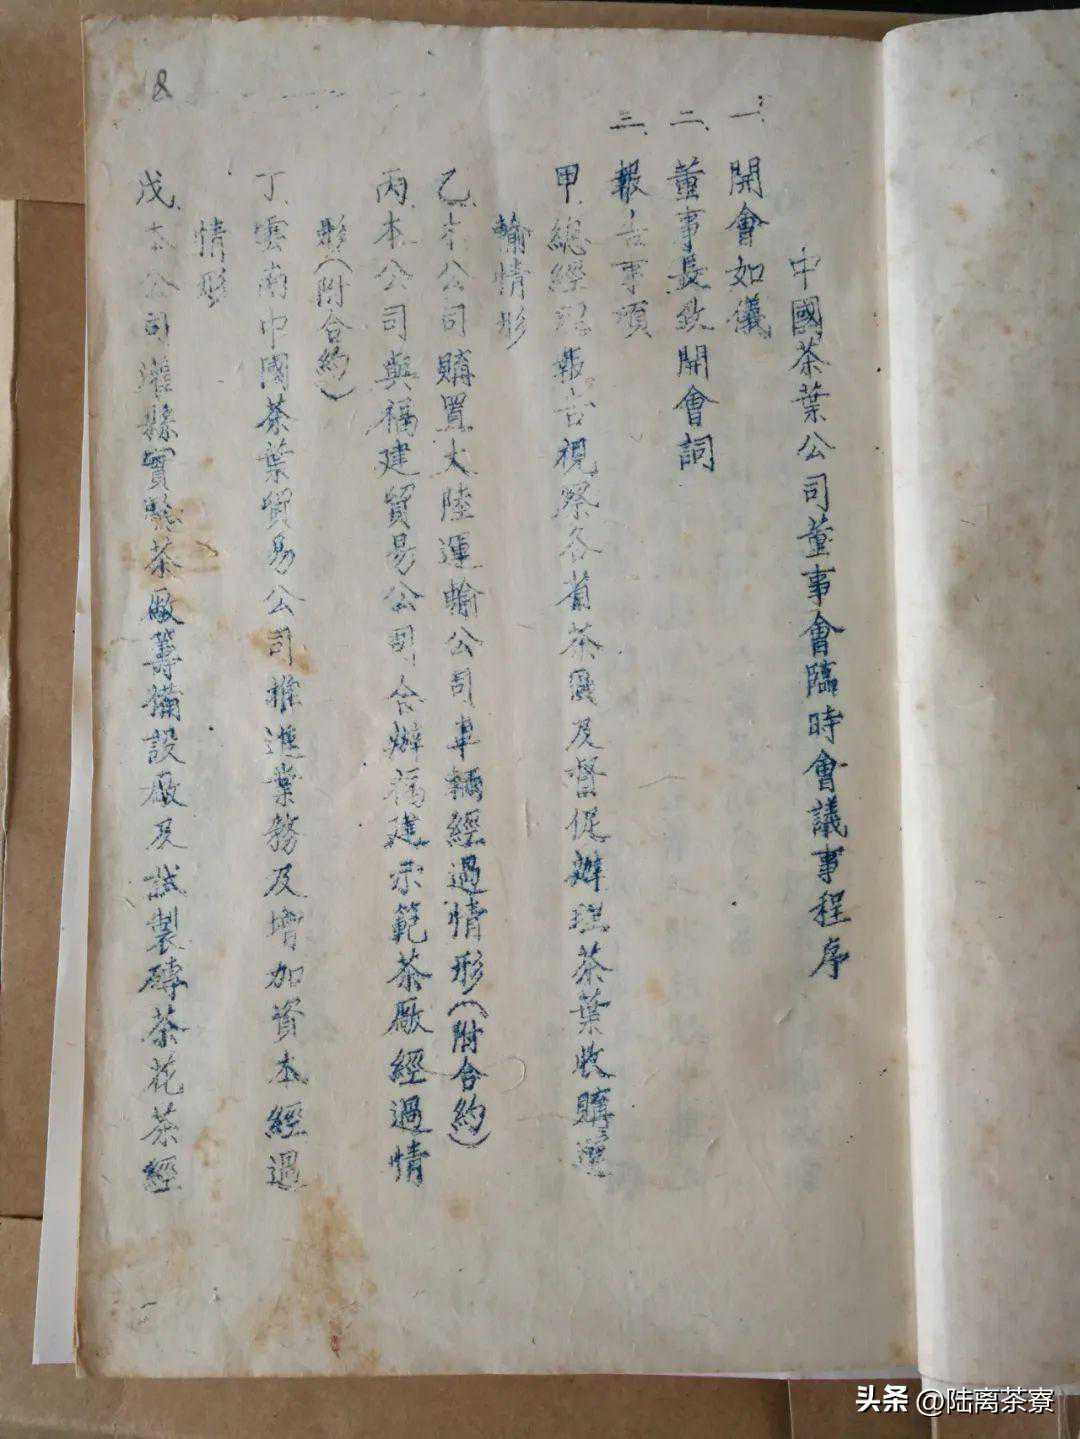 中國茶葉公司董事會臨時會議事程序
一、開會如儀
二、董事長致開會詞
三、報告事項
甲、總經理報告視察各省茶區及督促辦理茶葉收購運
輸情形
乙、本公司購置大陸運輸公司車輛經過情形（附合約）
丙、本公司與福建貿易公司合辦福建示範茶廠經過情
形（附合約）
丁、雲南中國茶葉貿易公司推進業務及增加資本經過
情形
戊、本公司灌縣實驗茶廠籌備設廠及試製磚茶花茶經
18
头条 @陆离茶寮